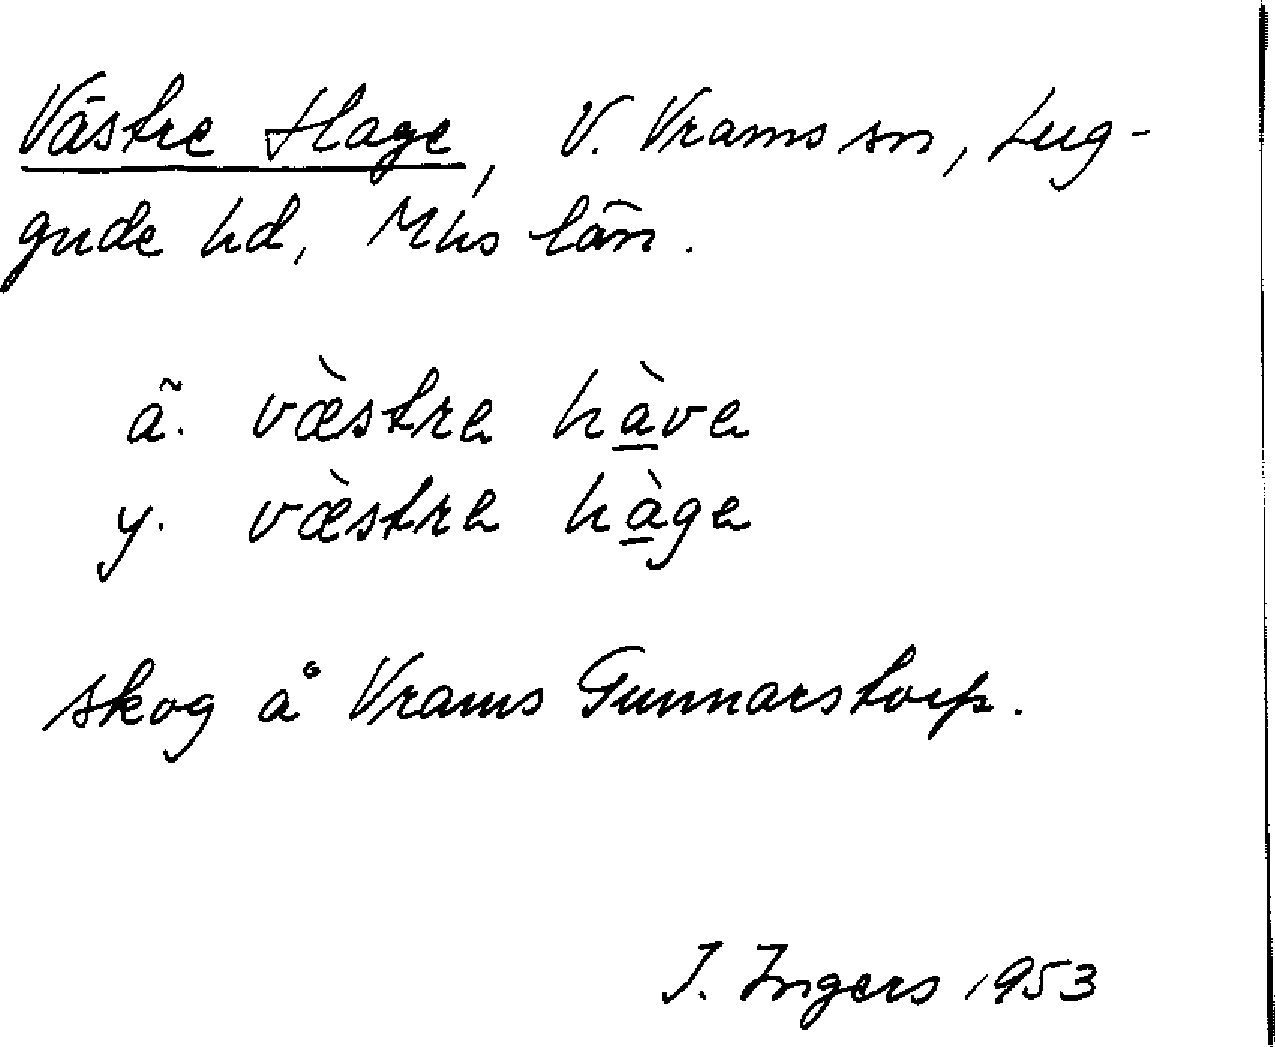 Västre Hage, V. Vrams sn, Lug-
gude hd, Mhs län.
ä. væ̀stre hà̲ve
y. væ̀stre hà̲ge
skog å Vrams Gunnarstorp.
I. Ingers 1953